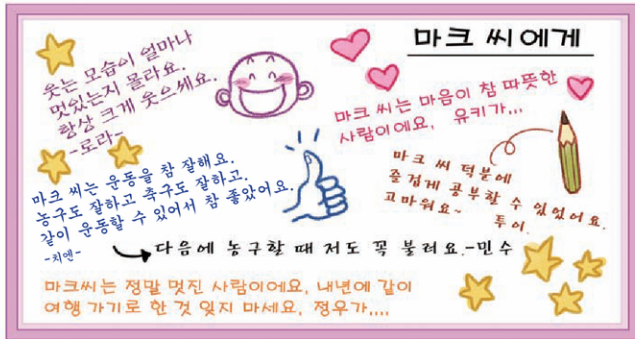 마크 씨에게
웃는 모습이 얼마나
멋있는지 몰라요.
항상 크게 웃으세요.
-로라-
마크 씨는 마음이 참 따뜻한
사람이에요, 유키가...
마크 씨는 운동을 참 잘해요.
농구도 잘하고 축구도 잘하고.
같이 운동할 수 있어서 참 좋았어요.
-치엔-
마크 씨 덕분에
즐겁게 공부할 수 있었어요.
고마워요~
투이.
다음에 농구할 때 저도 꼭 불려요.-민수
마크씨는 정말 멋진 사람이에요, 내년에 같이
여행 가기로 한 것 잊지 마세요, 정우가....